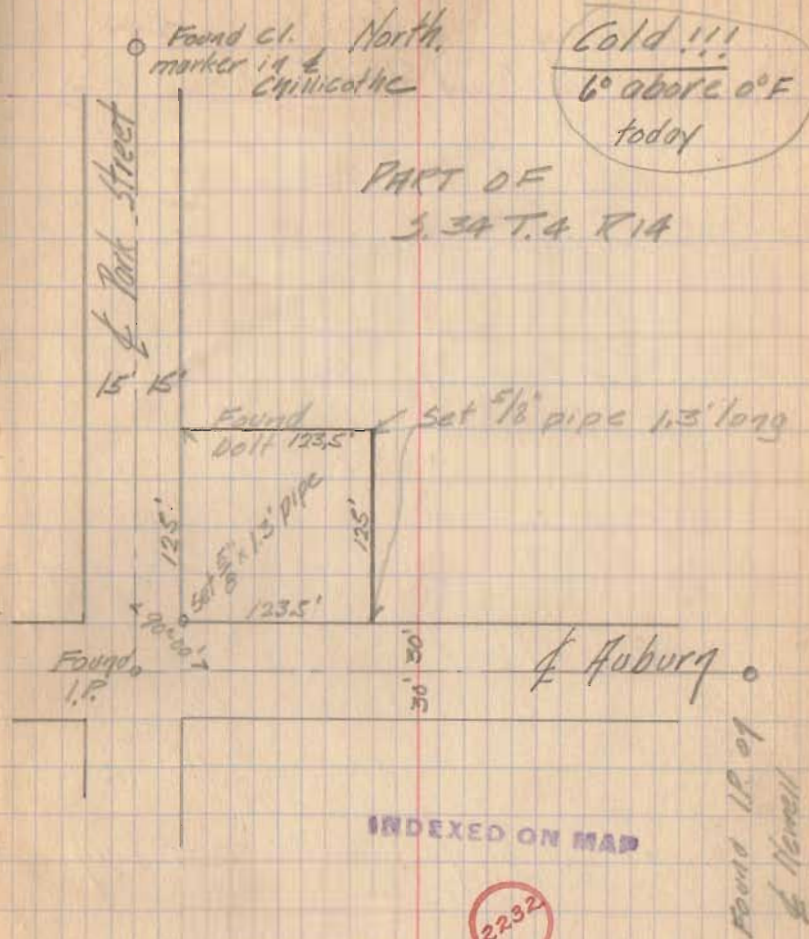 Found C.I. North.
marker in ℄
Chillicothe
Cold !!!
6° above 0°F
today
PART OF
S. 34 T. 4 R 14
℄ Park Street
15' 15'
Found
bolt 123.5'
Set 5/8" pipe 1.3' long
125'
Set 5/8" x 1.3' pipe
125'
123.5'
90°00'
Found
I.P.
30' 30'
℄ Auburn
Found I.P. of
℄ Newell
INDEXED ON MAP
2232